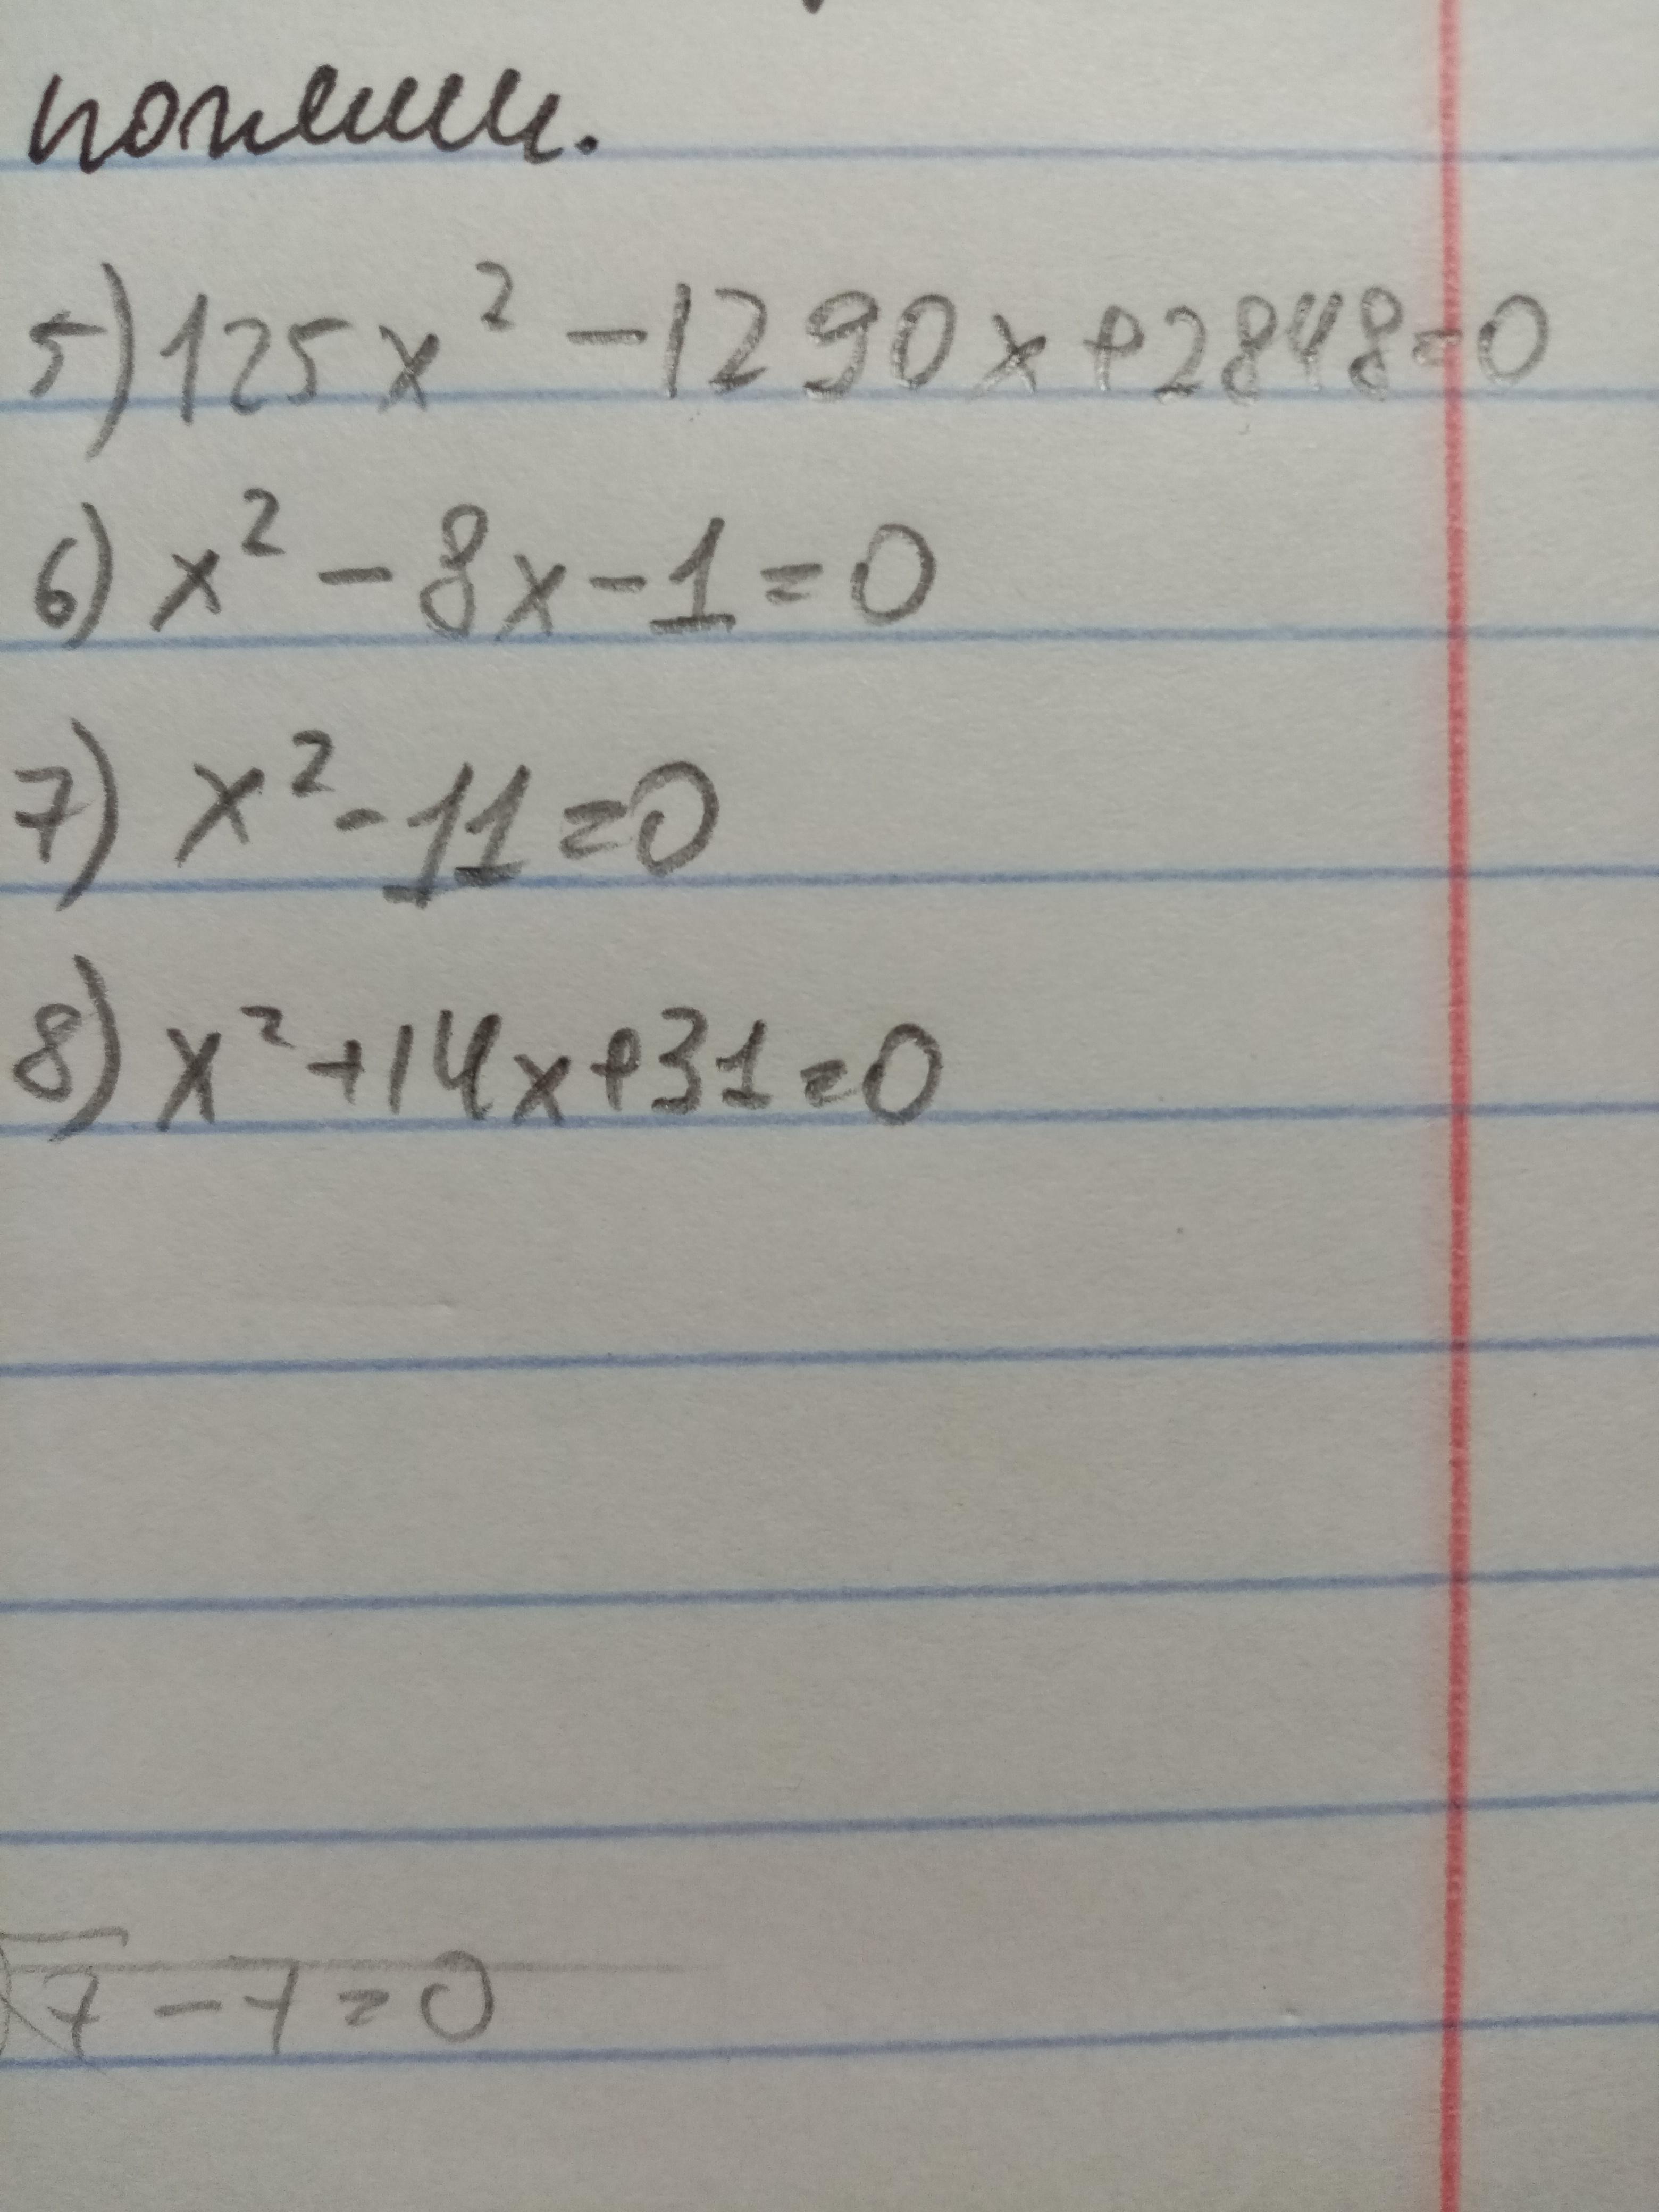 5) 125x² - 1290x + 2848 = 0
6) x² - 8x - 1 = 0
7) x² - 11 = 0
8) x² + 14x + 31 = 0
√7 - 7 = 0